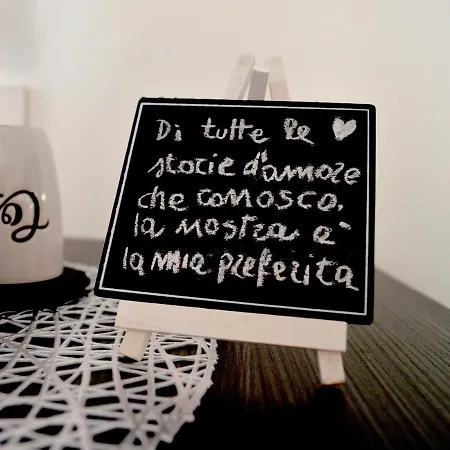 Di tutte le ♥
storie d'amore
che conosco,
la nostra è
la mia preferita